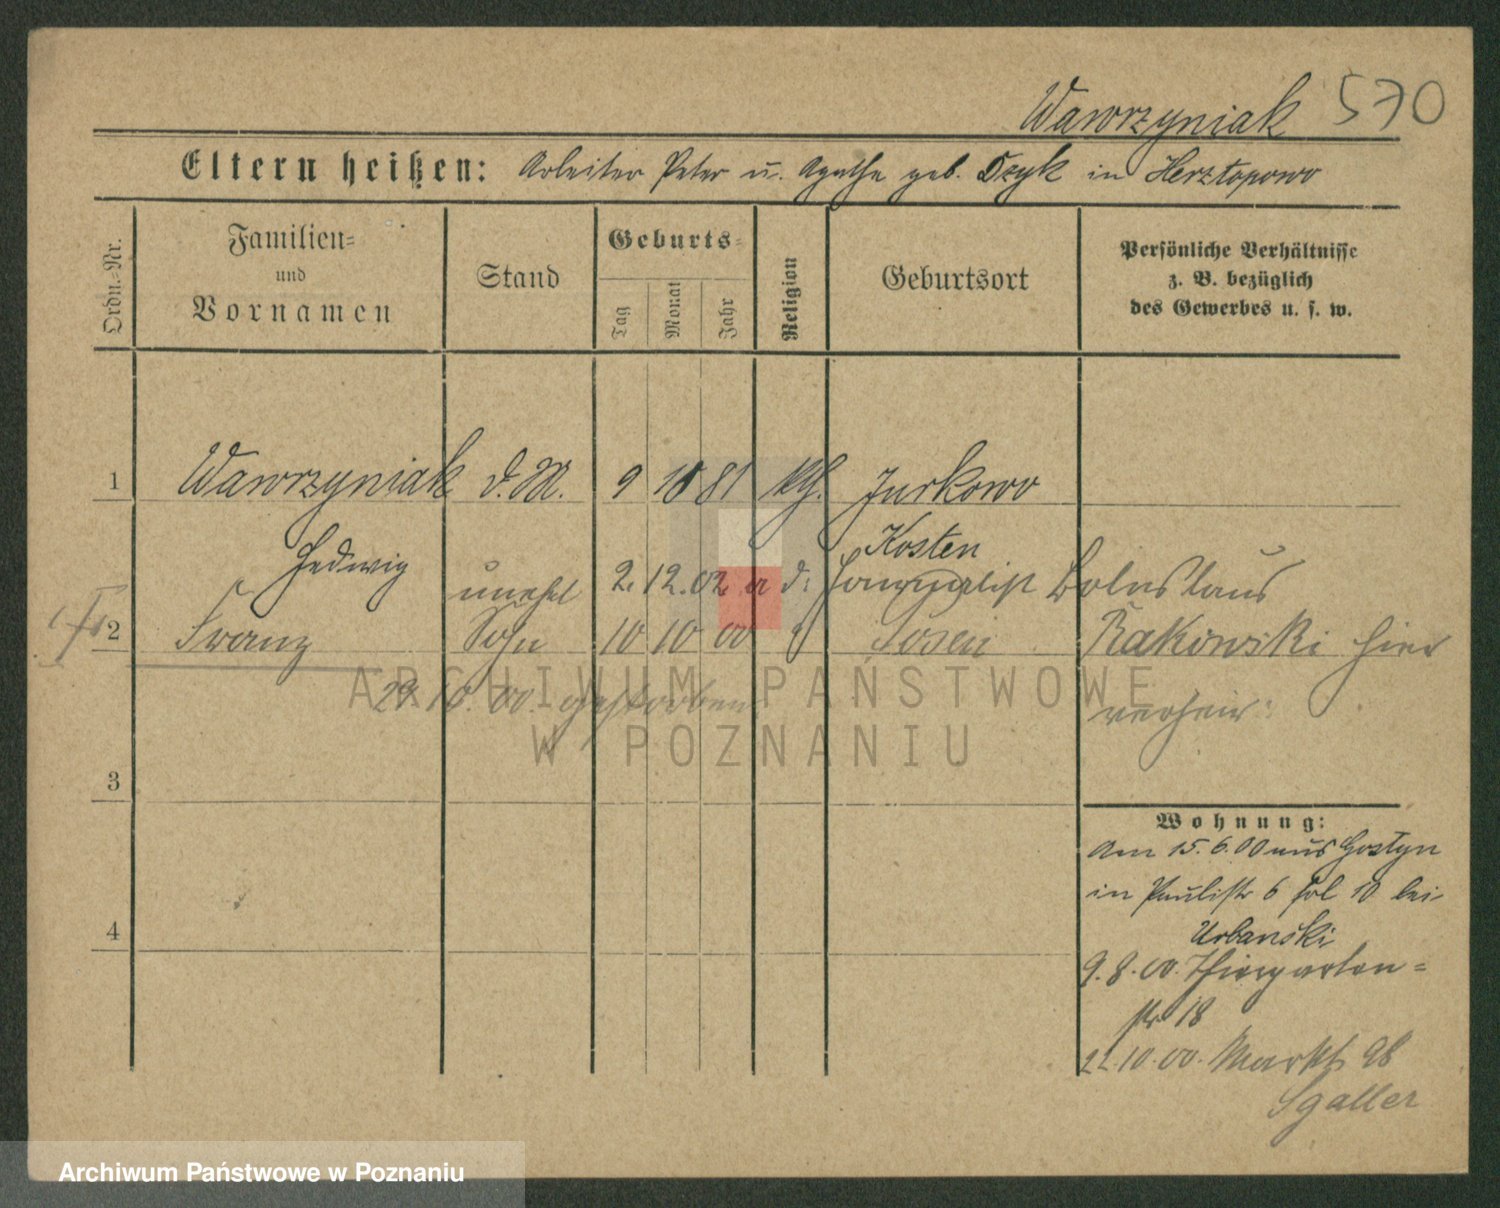 Wawrzyniak 570
Eltern heißen: Arbeiter Peter u. Agathe geb. Dzyk in Herztopowo
Ordn.=Nr.
Familien=
und
Vornamen
Stand
Geburts=
Tag
Monat
Jahr
Religion
Geburtsort
Persönliche Verhältnisse
z. B. bezüglich
des Gewerbes u. s. w.
1 Wawrzyniak d. M. 9 10 81 kth. Jurkowo
Kosten
Hedwig unehl 2. 12. 02 a d: Boleslaus
2 Franz Sohn 10 10 00 Posen Rakowski hier
29.10.00. gestorben verheir:
3
4
Wohnung:
Am 15.6.00 aus Gostyn
in Paulistr 6 bei
Urbanski
9.8.00. Thiergarten=
str 18
22.10.00. Markt 98
Sgaller
ARCHIWUM PAŃSTWOWE
W POZNANIU
Archiwum Państwowe w Poznaniu